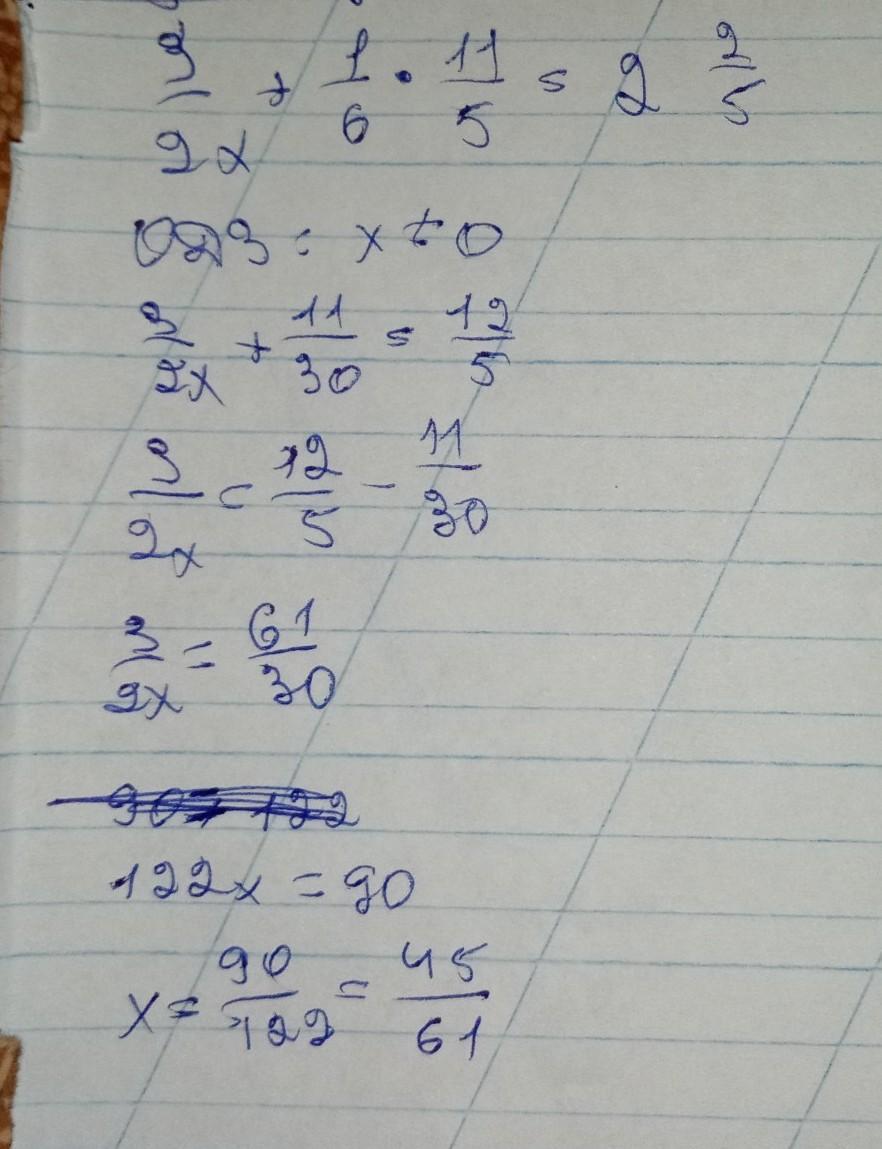 3/2x + 1/6 · 11/5 = 2 2/5
ОДЗ: x ≠ 0
3/2x + 11/30 = 12/5
3/2x = 12/5 - 11/30
3/2x = 61/30
122x = 90
x = 90/122 = 45/61